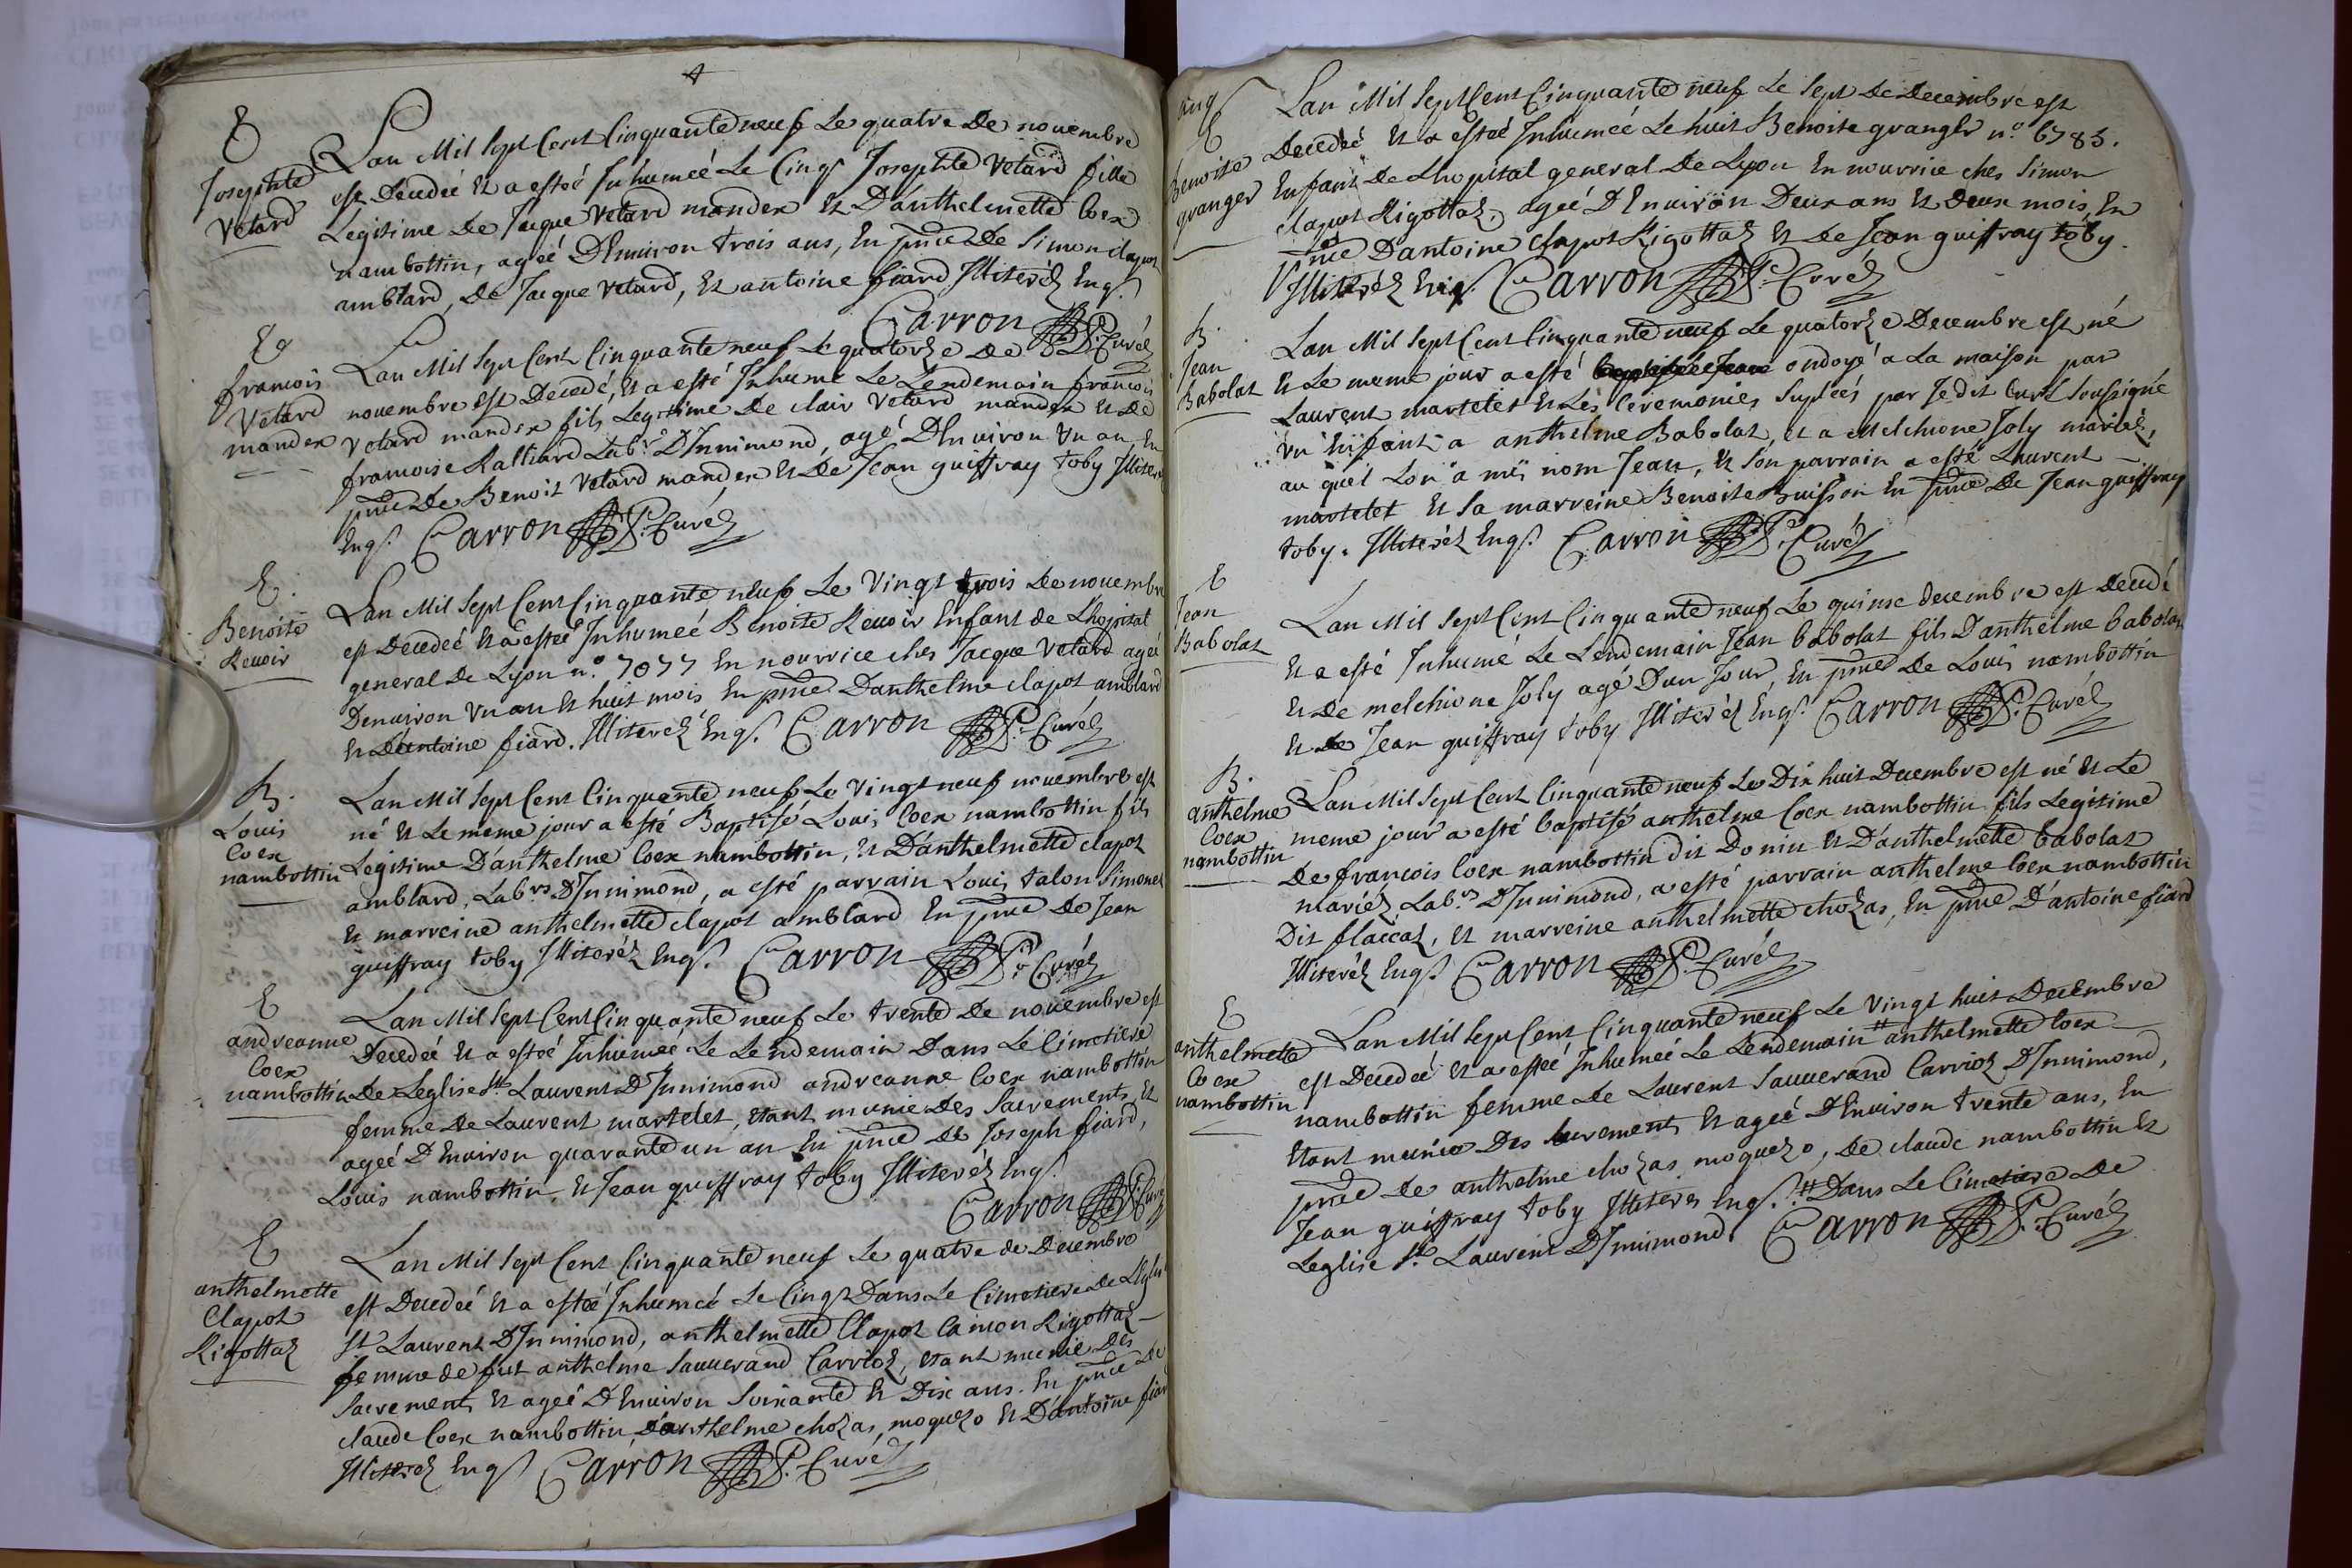 E
Josephte
Vetard
Lan Mil Sept Cent Cinquante neuf Le quatre De novembre
est Decedeé Et a esteé Inhumeé Le Cinq Josephte Vetard fille
Legitime De Jacque Vetard mander Et D'anthelmette Coex
nambottin, ageé D'Environ trois ans, En pñce De Simon clapot
amblard, De Jacque Vetard, Et antoine fiard Illiteréz Enqs.
Carron Pr. Curéz
E
francois
Vetard
mander
Lan Mil Sept Cent Cinquante neuf Le quatorze De
novembre est Decedé, Et a esté Inhumé Le Lendemain francois
Vetard mander fils Legitime De clair Vetard mander Et De
francoise Ralliard Labrs. D'Innimond, agé D'Environ Un an, En
pñce De Benoit Vetard mander Et De Jean guiffray toby Illiteréz
Enqs. Carron Pr. Curéz
E.
Benoite
Revoir
Lan Mil Sept Cent Cinquante neuf Le Vingt trois De novembre
est Decedeé Et a esteé Inhumeé Benoite Revoir Enfant de L'hopital
general De Lyon n.o 7077 En nourrice ches Jacque Vetard ageé
Denviron Vn an Et huit mois En pñce D'anthelme clapot amblard
Et D'antoine fiard. Illiteréz Enqs. Carron Pr. Curéz
B.
Louis
Coex
nambottin
Lan Mil Sept Cent Cinquante neuf Le Vingt neuf novembre est
né Et Le meme jour a esté Baptisé Louis Coex nambottin fils
Legitime D'anthelme Coex nambottin, Et D'anthelmette clapot
amblard, Labrs. D'Innimond, a esté parrain Louis talon Simonet
Et marreine anthelmette clapot amblard En pñce De Jean
guiffray toby Illiteréz Enqs. Carron Pr. Curéz
E
andreanne
Coex
nambottin
Lan Mil Sept Cent Cinquante neuf Le trente De novembre est
Decedeé Et a esteé Inhumeé Le Lendemain Dans Le Cimetiere
De Leglise St. Laurent D'Innimond andreanne Coex nambottin
femme De Laurent martelet, Etant munie Des Sacrements, Et
ageé D'Environ quarante un an En pñce De Joseph fiard,
Louis nambottin, Et Jean guiffray toby Illiteréz Enqs.
Carron Pr. Curéz
E
anthelmette
Clapot
Rigottaz
Lan Mil Sept Cent Cinquante neuf Le quatre de Decembre
est Decedeé Et a esteé Inhumeé Le Cinq Dans Le Cimetiere De L'Eglise
St Laurent D'Innimond, anthelmette Clapot Camon Rigottaz
femme de feut anthelme Sauverand Carrioz, Etant munie Des
Sacrements, Et ageé D'Environ Soixante Et Dix ans. En pñce De
claude Coex nambottin, D'anthelme chozas, moquezo Et D'antoine fiard
Illiteréz Enqs Carron Pr. Curéz
Enq
E
Benoite
granger
Lan Mil Sept Cent Cinquante neuf Le Sept De Decembre est
Decedeé Et a esteé Inhumeé Le huit Benoite granger n.o 6785.
Enfant De Lhopital general De Lyon En nourrice ches Simon
clapot Rigottaz, ageé D'Environ Deux ans Et Deux mois, En
pñce D'antoine Clapot Rigottaz Et De Jean guiffray toby.
Illiteréz Enqs. Carron Pr. Curéz
B.
Jean
Babolat
Lan Mil Sept Cent Cinquante neuf Le quatorze Decembre est né
Et Le meme jour a esté baptisé Jean ondoyé a La maison par
Laurent martelet Et Les Ceremonies Suplées par Je dit Curé Soussigné
Vn Enffant a anthelme Babolat, Et a Melchione Joly mariéz,
au quel Lon a mis nom Jean, Et Son parrain a esté Laurent
martelet Et Sa marreine Benoite Buisson En pñce De Jean guiffray
toby. Illiteréz Enqs. Carron Pr. Curéz
E
Jean
Babolat
Lan Mil Sept Cent Cinquante neuf Le quinse decembre est Decedé
Et a esté Inhumé Le Lendemain Jean babolat fils D'anthelme babolat
Et De melchione Joly agé D'un Jour, En pñce De Louis nambottin
Et De Jean guiffray toby Illiteréz Enqs. Carron Pr. Curéz
B.
anthelme
Coex
nambottin
Lan Mil Sept Cent Cinquante neuf Le Dix huit Decembre est né Et Le
meme jour a esté baptisé anthelme Coex nambottin fils Legitime
De francois Coex nambottin dit Donin Et D'anthelmette babolat
mariéz Labrs. D'Innimond, a esté parrain anthelme Coex nambottin
Dit flaccaz, Et marreine anthelmette chozas, En pñce D'antoine fiard
Illiteréz Enqs Carron Pr. Curéz
E
anthelmette
Coex
nambottin
Lan Mil Sept Cent Cinquante neuf Le Vingt huit Decembre
est Decedeé Et a esteé Inhumeé Le Lendemain # anthelmette Coex
nambottin femme De Laurent Sauverand Carrioz D'Innimond,
Etant munie Des Sacrements, Et ageé D'Environ trente ans, En
pñce De anthelme chozas moquezo, De claude nambottin Et
Jean guiffray toby Illiteres Enqs. # Dans Le Cimetiere De
Leglise St. Laurent D'Innimond Carron Pr. Curéz